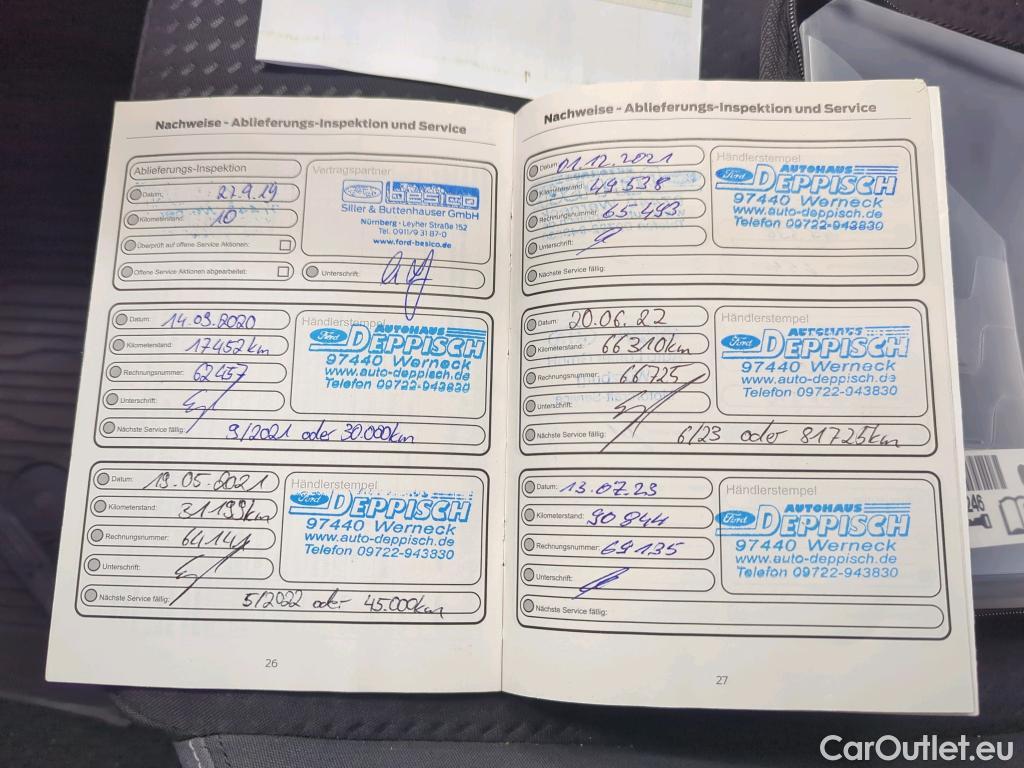 Nachweise - Ablieferungs-Inspektion und Service
Ablieferungs-Inspektion
Datum: 27.9.19
Kilometerstand: 10
Überprüft auf offene Service Aktionen:
Offene Service Aktionen abgearbeitet:
Vertragspartner
Ford besico
Siller & Buttenhauser GmbH
Nürnberg · Leyher Straße 152
Tel. 0911/9 31 87-0
www.ford-besico.de
Unterschrift:
Datum: 14.09.2020
Kilometerstand: 17452km
Rechnungsnummer: 62457
Unterschrift:
Nächste Service fällig: 9/2021 oder 30.000km
Händlerstempel
Ford AUTOHAUS
DEPPISCH
97440 Werneck
www.auto-deppisch.de
Telefon 09722-943830
Datum: 19.05.2021
Kilometerstand: 31199km
Rechnungsnummer:
Unterschrift:
Nächste Service fällig: 5/2022 oder 45.000km
Händlerstempel
Ford AUTOHAUS
DEPPISCH
97440 Werneck
www.auto-deppisch.de
Telefon 09722-943830
26
Nachweise - Ablieferungs-Inspektion und Service
Datum: 01.12.2021
Kilometerstand: 49.538
Rechnungsnummer: 65493
Unterschrift:
Nächste Service fällig:
Händlerstempel
Ford AUTOHAUS
DEPPISCH
97440 Werneck
www.auto-deppisch.de
Telefon 09722-943830
Datum: 20.06.22
Kilometerstand: 66310km
Rechnungsnummer: 66725
Unterschrift:
Nächste Service fällig: 6/23 oder 81725km
Händlerstempel
Ford AUTOHAUS
DEPPISCH
97440 Werneck
www.auto-deppisch.de
Telefon 09722-943830
Datum: 13.07.23
Kilometerstand: 90844
Rechnungsnummer: 69135
Unterschrift:
Nächste Service fällig:
Händlerstempel
Ford AUTOHAUS
DEPPISCH
97440 Werneck
www.auto-deppisch.de
Telefon 09722-943830
27
246
CarOutlet.eu